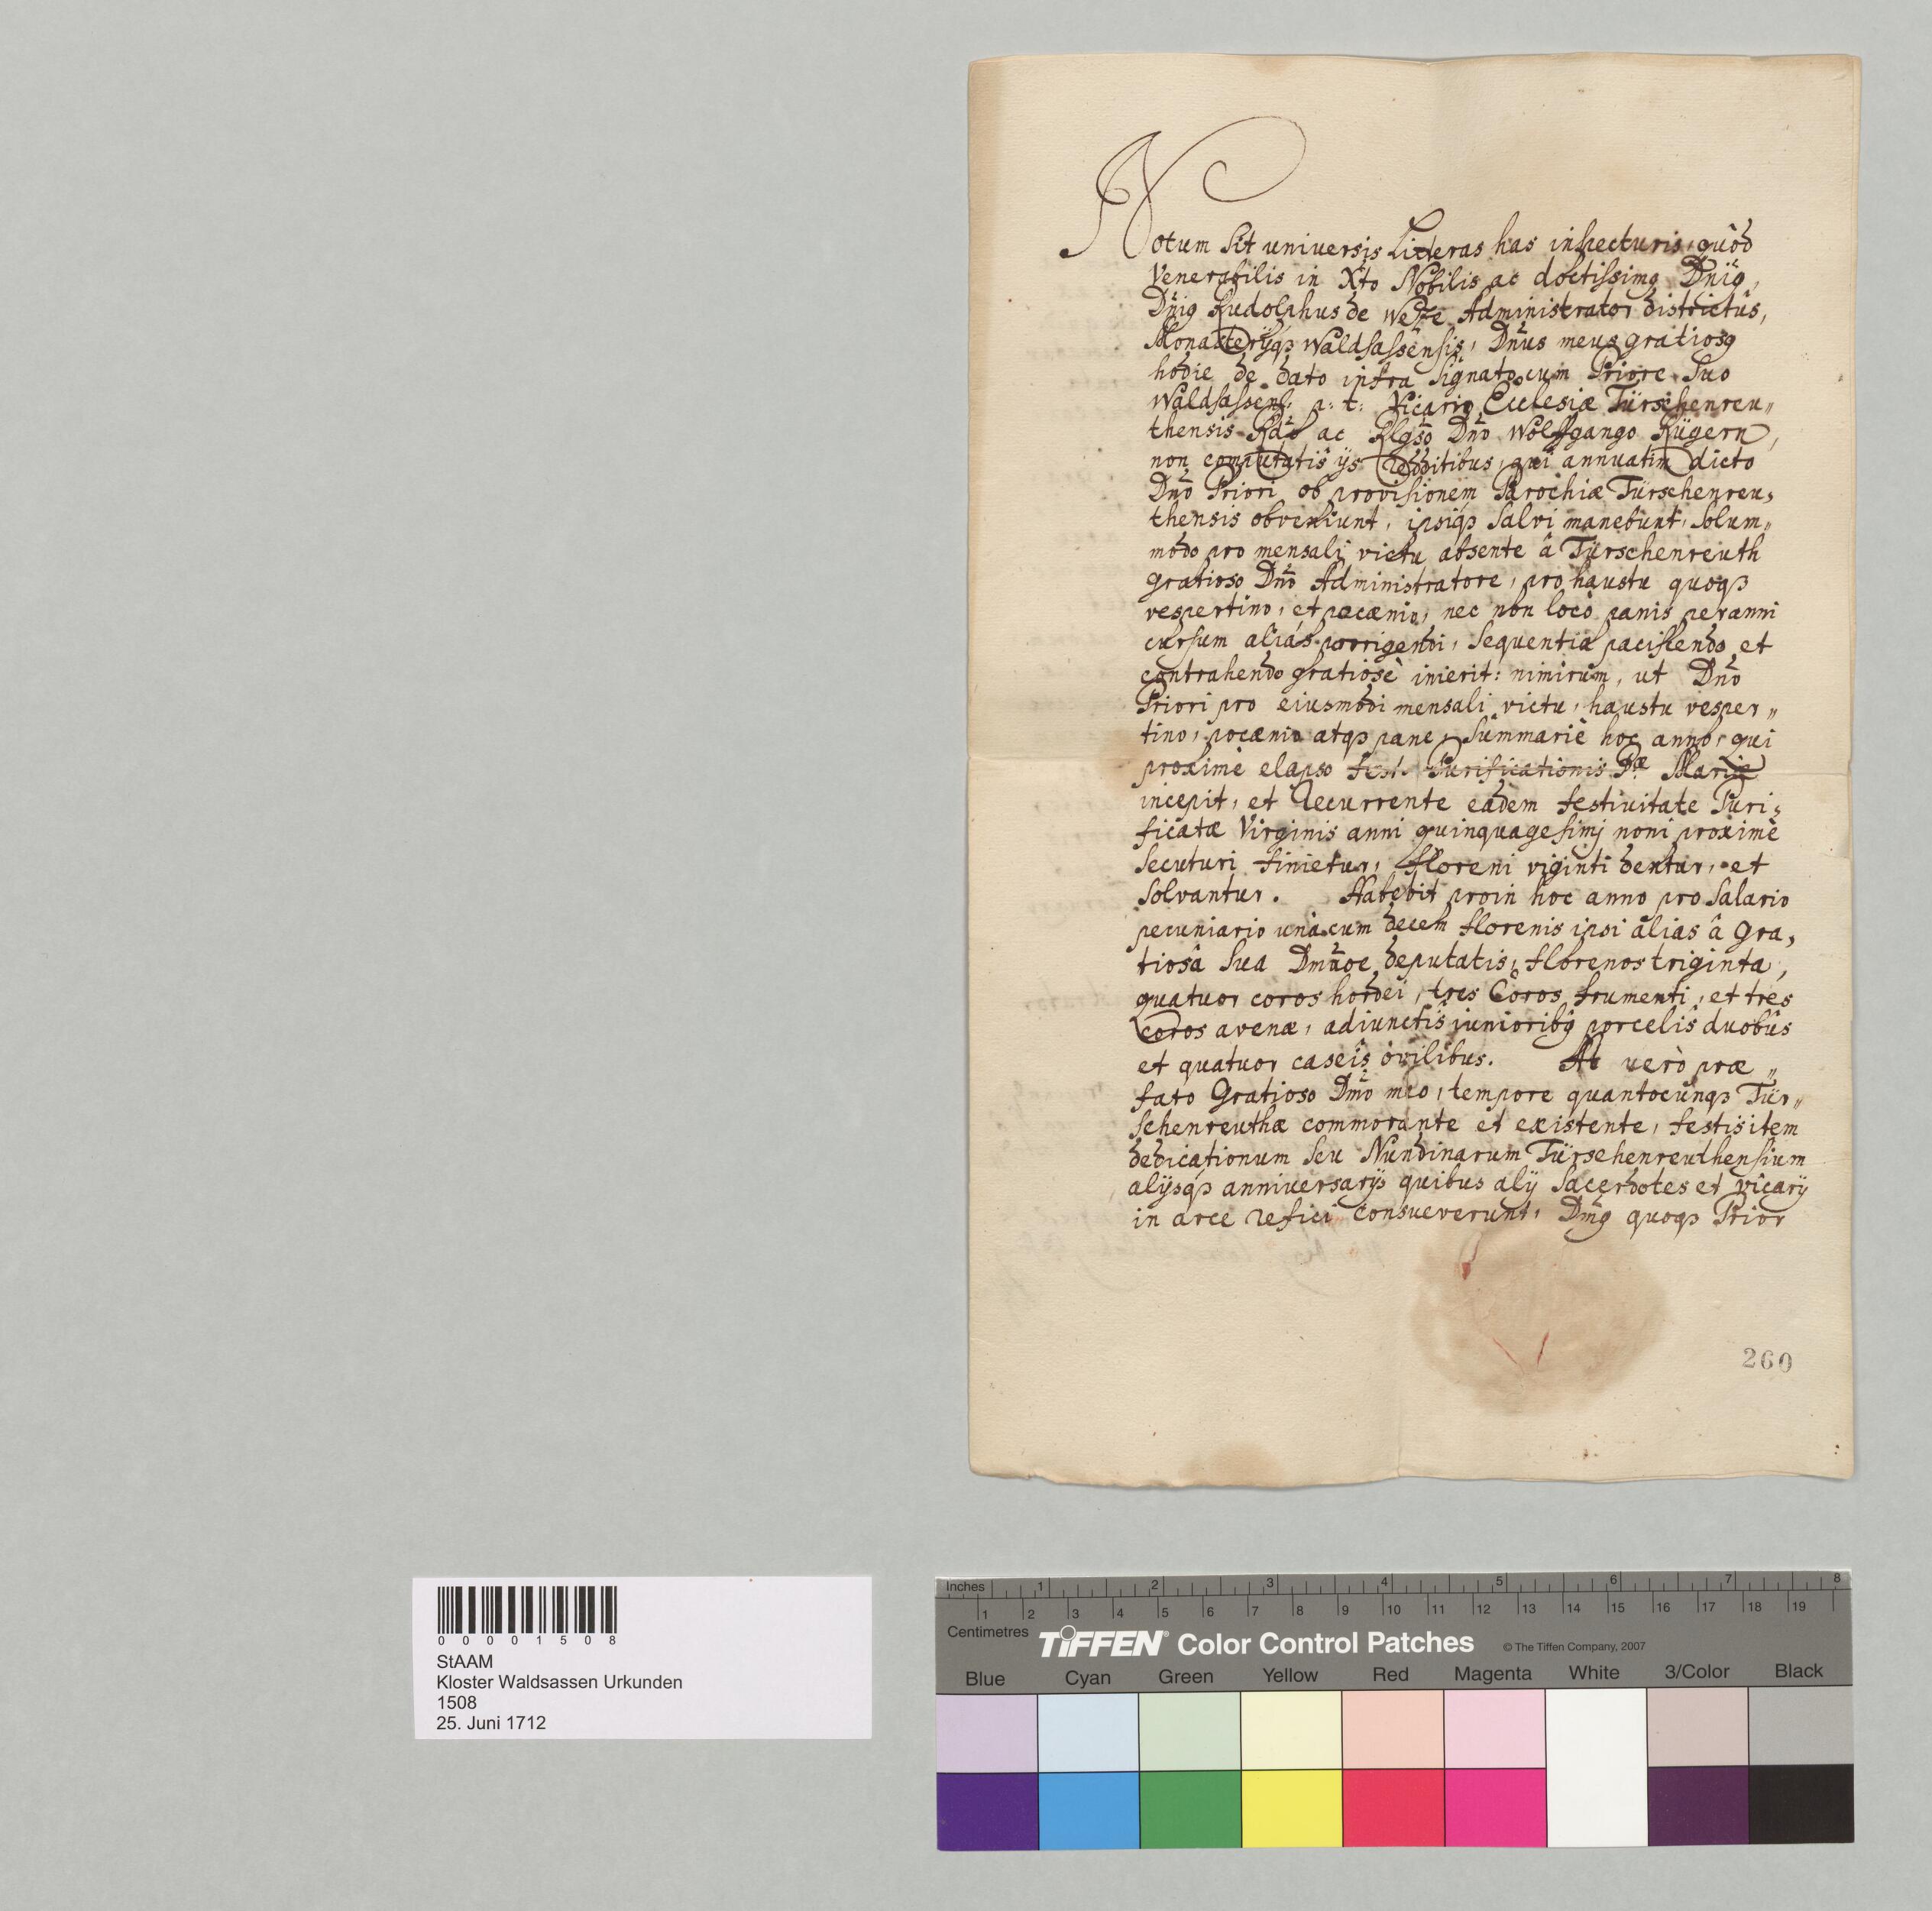 Notum sit universis Literas has inspecturis, quòd
Venerabilis in Xto Nobilis ac doctissimꝰ Dn̄ꝰ,
Dn̄ꝰ Rudolphus de Weße Administrator districtûs,
Monasterÿqꝫ Waldsassensis, Dn̄us meus gratiosꝰ
hodie de dato infra signato cum Priore suo
Waldsassens: p: t: Vicario Ecclesiæ Türschenreu„
thensis Rdō ac Rlgsō Dnō Wolffgango Rügern,
non computatis ÿs redditibus, qui annuatim dicto
Dnō Priori ob provisionem Parochiæ Türschenreu„
thensis obveniunt, ipsiqꝫ salvi manebunt, solum„
modo pro mensali victu absente â Türschenreuth
gratioso Dnō Administratore, pro haustu quoqꝫ
vespertino, et pocænio, nec non locô panis per anni
cursum aliás porrigendi, sequentia paciscendo et
contrahendo gratiosè inierit: nimirùm, ut Dnō
Priori pro eiusmodi mensali victu, haustu vesper„
tino, pocænio atqꝫ pane, Summariè hoc anno, qui
proximè elapso festo Purificationis Bæ Mariæ
incepit, et recurrente eâdem festivitate Puri„
ficatæ Virginis anni quinquagesimj noni proximè
secuturi finietur, floreni viginti dentur, et
solvantur. Habebit proin hoc anno pro salario
pecuniario unà cum decem florenis ipsi aliàs â Gra„
tiosâ sua Dmn̄oe deputatis, florenos triginta,
quatuor coros hordei, tres Coros frumenti, et tres
Coros avenæ, adiunctis junioribꝰ porcelis duobus
et quatuor caseis ovilibus. At verò præ„
fato Gratioso Dnō meo, tempore quantocunqꝫ Tür„
schenreuthæ commorante et existente, festis item
dedicationum seu Nundinarum Türschenreuthensium
alÿsqꝫ anniversarÿs quibus alÿ Sacerdotes et vicarÿ
in arce refici consueverunt, Dn̄ꝰ quoqꝫ Prior
260
0001508
StAAM
Kloster Waldsassen Urkunden
1508
25. Juni 1712
Inches 1 2 3 4 5 6 7 8
1 2 3 4 5 6 7 8 9 10 11 12 13 14 15 16 17 18 19
Centimetres
TIFFEN® Color Control Patches © The Tiffen Company, 2007
Blue Cyan Green Yellow Red Magenta White 3/Color Black